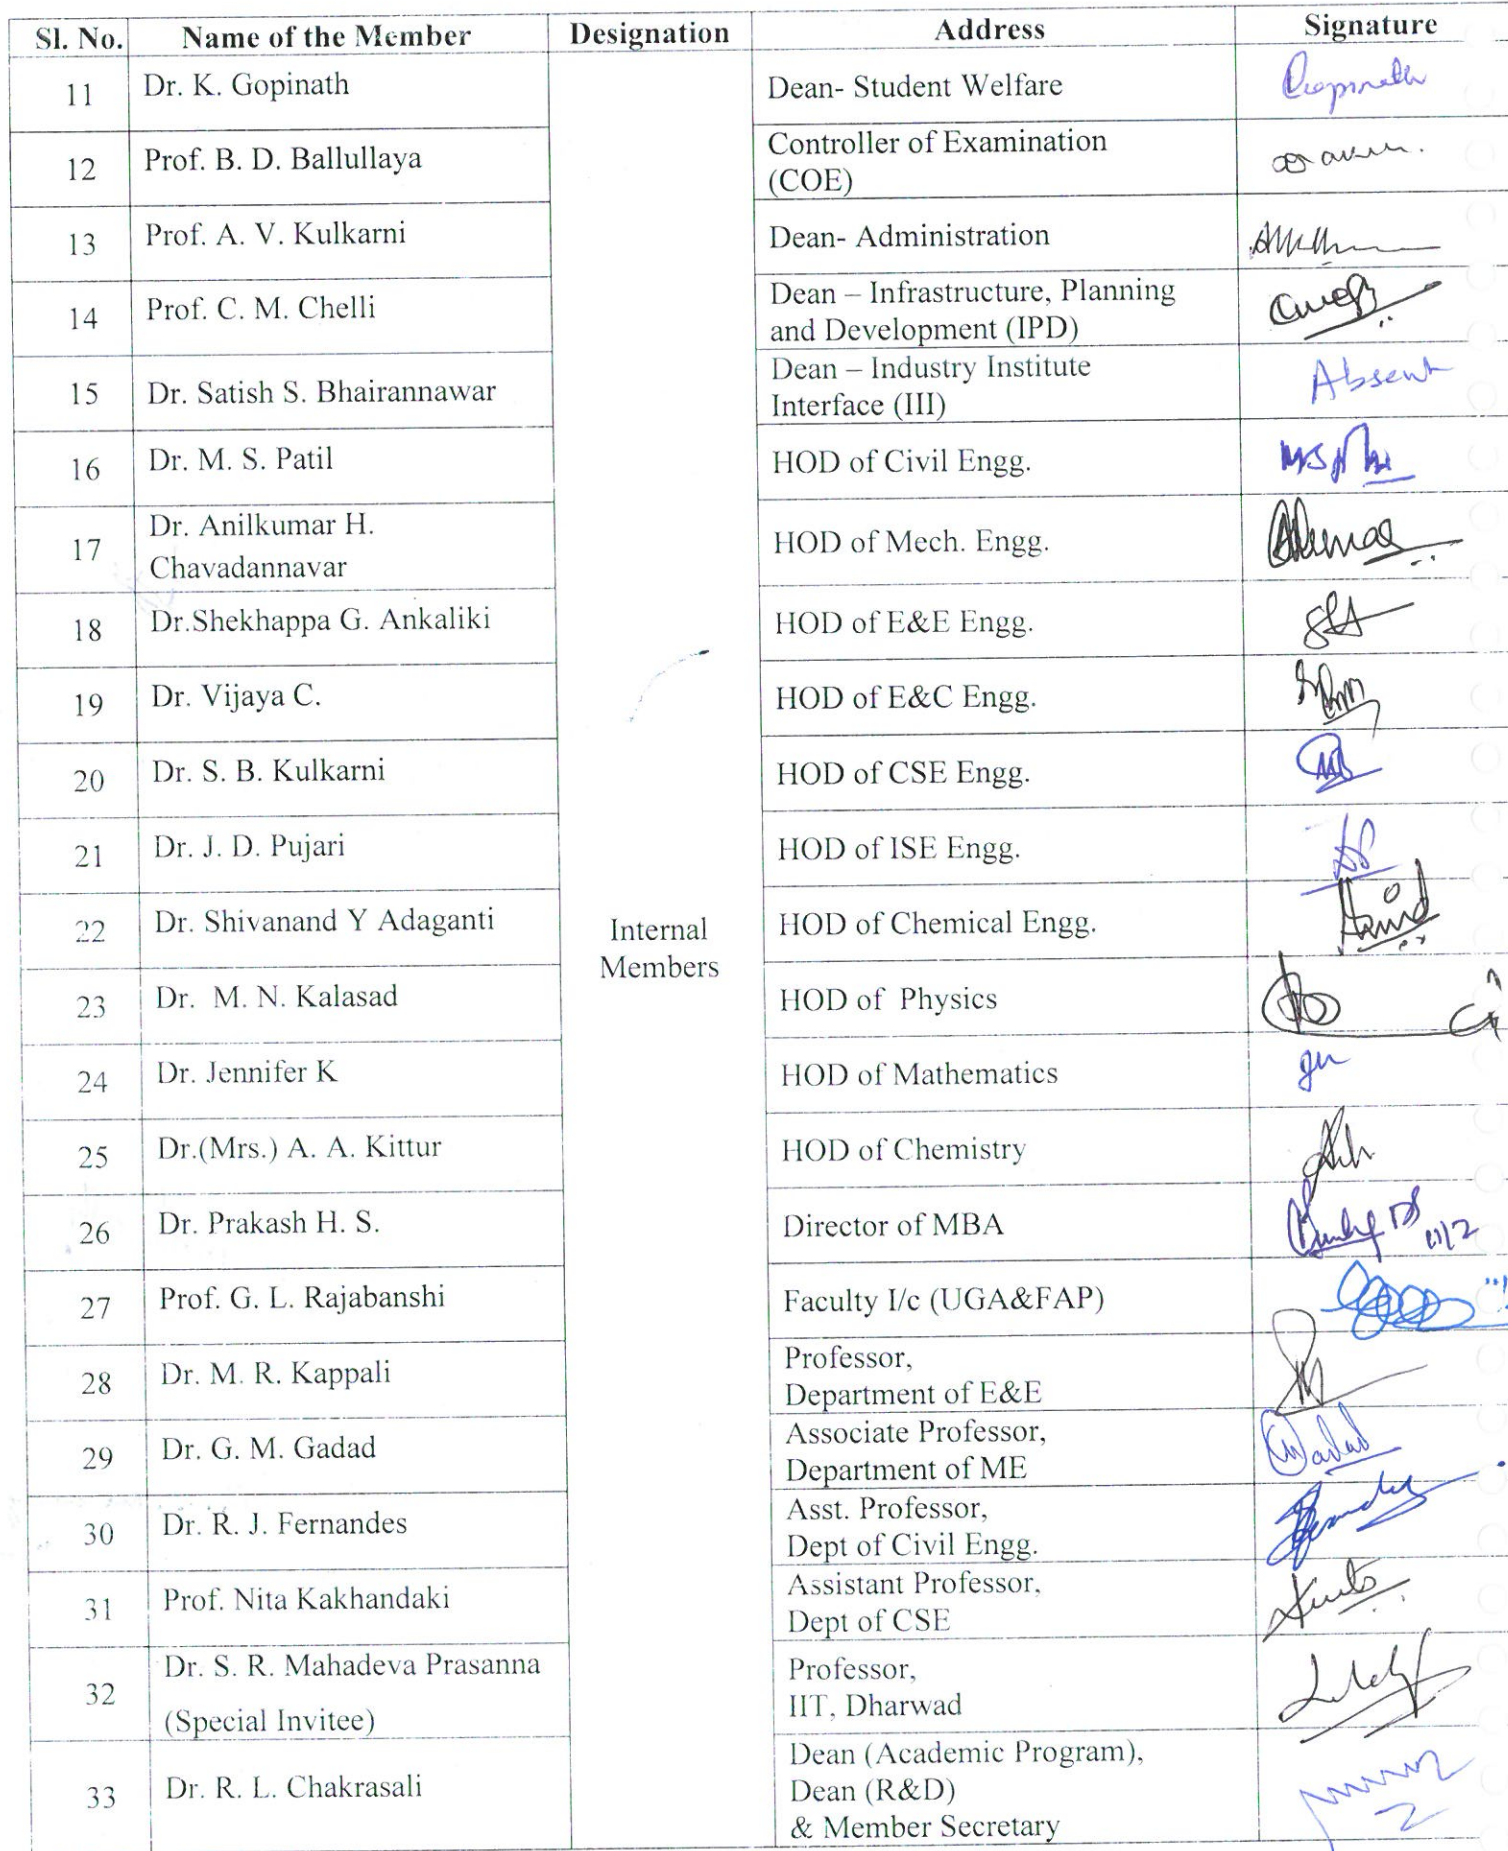 Sl. No. Name of the Member Designation Address Signature
11 Dr. K. Gopinath Dean- Student Welfare Gopinath
12 Prof. B. D. Ballullaya Controller of Examination
(COE)
13 Prof. A. V. Kulkarni Dean- Administration
14 Prof. C. M. Chelli Dean – Infrastructure, Planning
and Development (IPD)
15 Dr. Satish S. Bhairannawar Dean – Industry Institute
Interface (III) Absent
16 Dr. M. S. Patil HOD of Civil Engg.
17 Dr. Anilkumar H.
Chavadannavar HOD of Mech. Engg.
18 Dr.Shekhappa G. Ankaliki HOD of E&E Engg.
19 Dr. Vijaya C. HOD of E&C Engg.
20 Dr. S. B. Kulkarni HOD of CSE Engg.
21 Dr. J. D. Pujari HOD of ISE Engg.
22 Dr. Shivanand Y Adaganti Internal
Members HOD of Chemical Engg.
23 Dr. M. N. Kalasad HOD of Physics
24 Dr. Jennifer K HOD of Mathematics
25 Dr.(Mrs.) A. A. Kittur HOD of Chemistry
26 Dr. Prakash H. S. Director of MBA
27 Prof. G. L. Rajabanshi Faculty I/c (UGA&FAP)
28 Dr. M. R. Kappali Professor,
Department of E&E
29 Dr. G. M. Gadad Associate Professor,
Department of ME
30 Dr. R. J. Fernandes Asst. Professor,
Dept of Civil Engg.
31 Prof. Nita Kakhandaki Assistant Professor,
Dept of CSE
32 Dr. S. R. Mahadeva Prasanna
(Special Invitee) Professor,
IIT, Dharwad
33 Dr. R. L. Chakrasali Dean (Academic Program),
Dean (R&D)
& Member Secretary